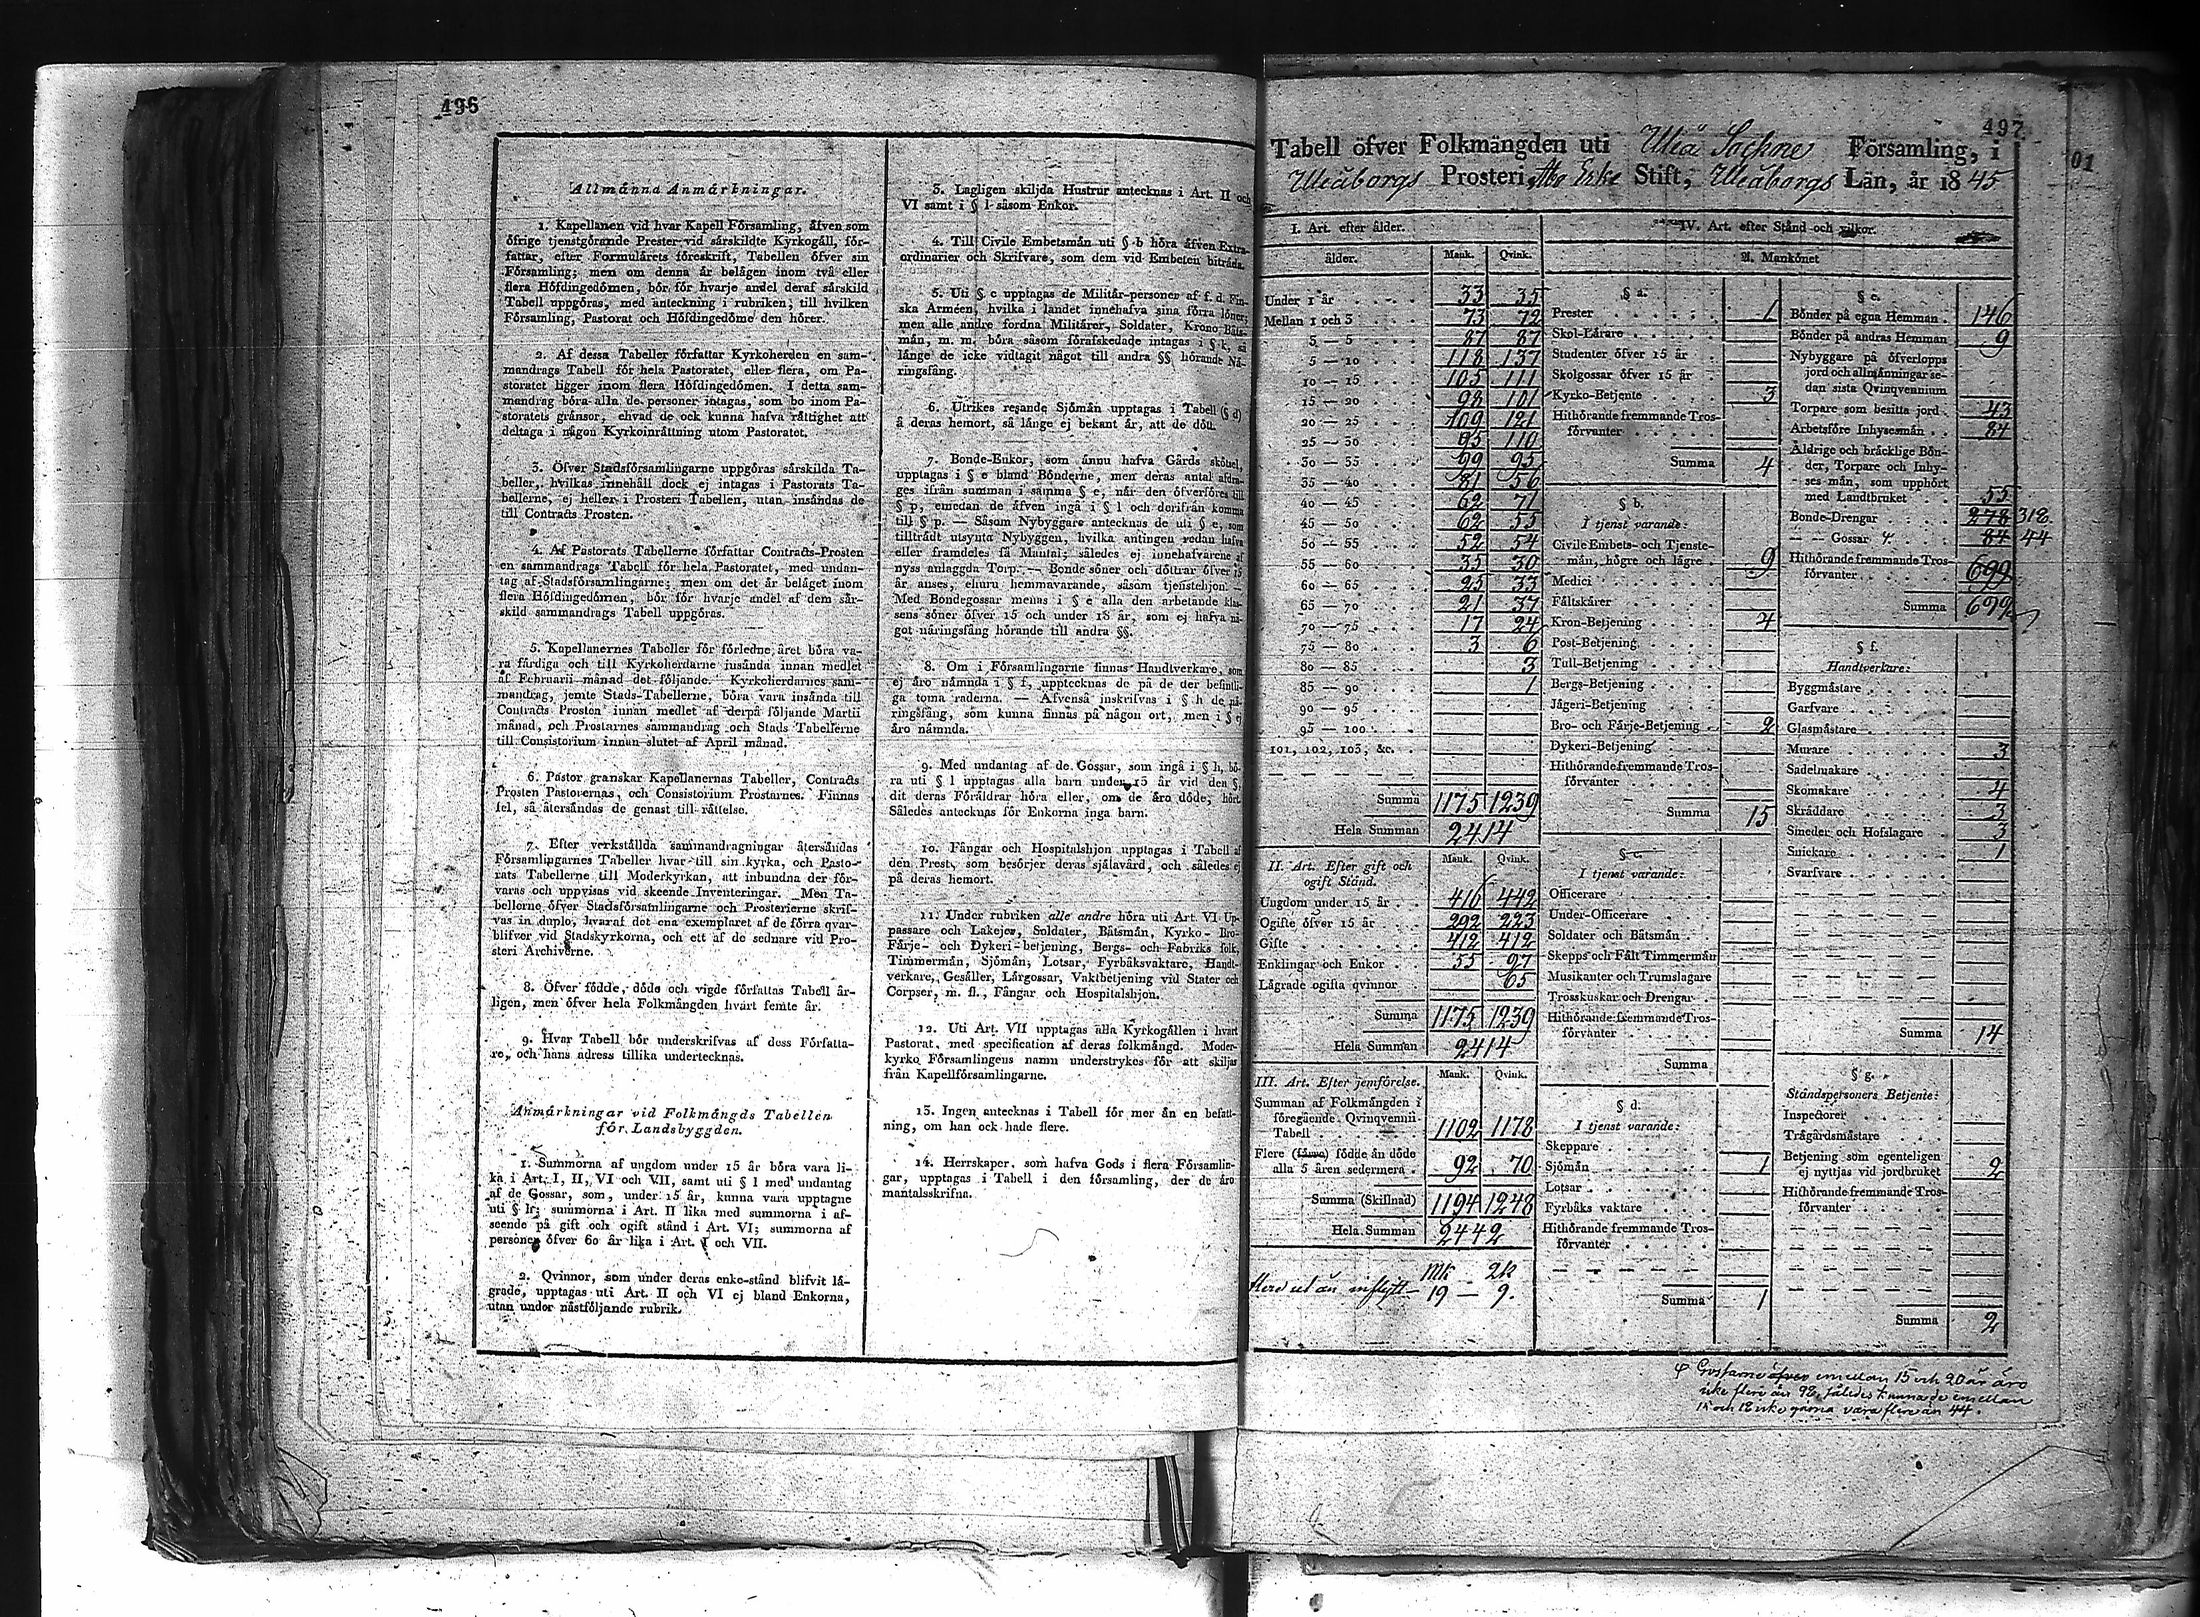 496
Allmänna Anmärkningar.
1. Kapellanen vid hvar Kapell Församling, äfven som
öfrige tjenstgörande Prester vid särskildte Kyrkogäll, för-
fattar, efter Formulärets föreskrift, Tabellen öfver sin
Församling; men om denna är belägen inom två eller
flera Höfdingedömen, bör för hvarje andel deraf särskild
Tabell uppgöras, med anteckning i rubriken, till hvilken
Församling, Pastorat och Höfdingedöme den hörer.
2. Af dessa Tabeller författar Kyrkoherden en sam-
mandrags Tabell för hela Pastoratet, eller flera, om Pa-
storatet ligger inom flera Höfdingedömen. I detta sam-
mandrag böra alla de personer intagas, som bo inom Pa-
storatets gränsor, ehvad de ock kunna hafva rättighet att
deltaga i någon Kyrkoinrättning utom Pastoratet.
3. Öfver Stadsförsamlingarne uppgöras särskilda Ta-
beller, hvilkas innehåll dock ej intagas i Pastorats Ta-
bellerne, ej heller i Prosteri Tabellen, utan insändas de
till Contracts Prosten.
4. Af Pastorats Tabellerne författar Contracts-Prosten
en sammandrags Tabell för hela Pastoratet, med undan-
tag af Stadsförsamlingarne; men om det är beläget inom
flera Höfdingedömen, bör för hvarje andel af dem sär-
skild sammandrags Tabell uppgöras.
5. Kapellanernes Tabeller för förledne året böra va-
ra färdiga och till Kyrkoherdarne insända innan medlet
af Februarii månad det följande. Kyrkoherdarnes sam-
mandrag, jemte Stads-Tabellerne, böra vara insända till
Contracts Prosten innan medlet af derpå följande Martii
månad, och Prostarnes sammandrag och Stads Tabellerne
till Consistorium innan slutet af April månad.
6. Pastor granskar Kapellanernas Tabeller, Contracts
Prosten Pastorernas, och Consistorium Prostarnes. Finnas
fel, så återsändas de genast till rättelse.
7. Efter verkställda sammandragningar återsändas
Församlingarnes Tabeller hvar till sin kyrka, och Pasto-
rats Tabellerne till Moderkyrkan, att inbundna der för-
varas och uppvisas vid skeende Inventeringar. Men Ta-
bellerne öfver Stadsförsamlingarne och Prosterierne skrif-
vas in duplo, hvaraf det ena exemplaret af de förra qvar-
blifver vid Stadskyrkorna, och ett af de sednare vid Pro-
steri Archiverne.
8. Öfver födde, döde och vigde författas Tabell år-
ligen, men öfver hela Folkmängden hvart femte år.
9. Hvar Tabell bör underskrifvas af dess Författa-
re, och hans adress tillika undertecknas.
Anmärkningar vid Folkmängds Tabellen
för Landsbyggden.
1. Summorna af ungdom under 15 år böra vara li-
ka i Art. I, II, VI och VII, samt uti § l med undantag
af de Gossar, som, under 15 år, kunna vara upptagne
uti § h; summorna i Art. II lika med summorna i af-
seende på gift och ogift stånd i Art. VI; summorna af
personer öfver 60 år lika i Art. I och VII.
2. Qvinnor, som under deras enke-stånd blifvit lä-
grade, upptagas uti Art. II och VI ej bland Enkorna,
utan under nästföljande rubrik.
3. Lagligen skiljda Hustrur antecknas i Art. II och
VI samt i § l såsom Enkor.
4. Till Civile Embetsmän uti § b höra äfven Extra-
ordinarier och Skrifvare, som dem vid Embeten biträda.
5. Uti § c upptagas de Militär-personer af f. d. Fin-
ska Arméen, hvilka i landet innehafva sina förra löner;
men alle andre fordna Militärer, Soldater, Krono Båts-
män, m. m. böra såsom förafskedade intagas i § k, så
länge de icke vidtagit något till andra §§ hörande Nä-
ringsfång.
6. Utrikes resande Sjömän upptagas i Tabell (§ d)
å deras hemort, så länge ej bekant är, att de dött.
7. Bonde-Enkor, som ännu hafva Gårds skötsel,
upptagas i § e bland Bönderne, men deras antal afdra-
ges ifrån summan i samma § e, når den öfverföres till
§ p, emedan de äfven ingå i § l och derifrån komma
till § p. — Såsom Nybyggare antecknas de uti § e, som
tillträdt utsynta Nybyggen, hvilka antingen redan hafva
eller framdeles få Mantal; således ej innehafvarene af
nyss anlaggda Torp. — Bonde söner och döttrar öfver 15
år anses, ehuru hemmavarande, såsom tjenstehjon. —
Med Bondegossar menas i § e alla den arbetande klas-
sens söner öfver 15 och under 18 år, som ej hafva nå-
got näringsfång hörande till andra §§.
8. Om i Församlingarne finnas Handtverkare, som
ej äro nämnda i § f, upptecknas de på de der befintli-
ga toma raderna. — Äfvenså inskrifvas i § h de nä-
ringsfång, som kunna finnas på någon ort, men i § ej
äro nämnda.
9. Med undantag af de Gossar, som ingå i § h, bö-
ra uti § l upptagas alla barn under 15 år vid den §,
dit deras Föräldrar höra eller, om de äro döde, hört.
Således antecknas för Enkorna inga barn.
10. Fångar och Hospitalshjon upptagas i Tabell af
den Prest, som besörjer deras själavård, och således ej
på deras hemort.
11. Under rubriken alle andre höra uti Art. VI Up-
passare och Lakejer, Soldater, Båtsmän, Kyrko- Bro-
Färje- och Dykeri-betjening, Bergs- och Fabriks folk,
Timmermän, Sjömän, Lotsar, Fyrbåksvaktare, Handt-
verkare, Gesäller, Lärgossar, Vaktbetjening vid Stater och
Corpser, m. fl., Fångar och Hospitalshjon.
12. Uti Art. VII upptagas alla Kyrkogällen i hvart
Pastorat, med specification af deras folkmängd. Moder-
kyrko Församlingens namn understrykes för att skiljas
från Kapellförsamlingarne.
13. Ingen antecknas i Tabell för mer än en befatt-
ning, om han ock hade flere.
14. Herrskaper, som hafva Gods i flera Församlin-
gar, upptagas i Tabell i den församling, der de äro
mantalsskrifna.
497
01
Tabell öfver Folkmängden uti Uleå Sockne Församling, i
Uleåborgs Prosteri, Åbo Erke Stift, Uleåborgs Län, år 1845
I. Art. efter ålder.
ålder. Mank. Qvink.
Under 1 år 33 35
Mellan 1 och 3 73 72
3 — 5 87 87
5 — 10 118 137
10 — 15 105 111
15 — 20 98 101
20 — 25 109 121
25 — 30 95 110
30 — 35 99 95
35 — 40 81 56
40 — 45 62 71
45 — 50 62 55
50 — 55 52 54
55 — 60 35 30
60 — 65 25 33
65 — 70 21 37
70 — 75 17 24
75 — 80 3 6
80 — 85 3
85 — 90 1
90 — 95
95 — 100
101, 102, 103, &c.
Summa 1175 1239
Hela Summan 2414
II. Art. Efter gift och
ogift Stånd. Mank. Qvink.
Ungdom under 15 år 416 442
Ogifte öfver 15 år 292 223
Gifte 412 412
Enklingar och Enkor 55 97
Lägrade ogifta qvinnor 65
Summa 1175 1239
Hela Summan 2414
III. Art. Efter jemförelse. Mank. Qvink.
Summan af Folkmängden i
föregående Qvinqvennii-
Tabell 1102 1178
Flere (färre) födde än döde
alla 5 åren sedermera 92 70
Summa (Skillnad) 1194 1248
Hela Summan 2442
Mk Qk
flere ut än inflytt — 19 — 9.
IV. Art. efter Stånd och vilkor.
A. Mankönet
§ a.
Prester 1
Skol-Lärare
Studenter öfver 15 år
Skolgossar öfver 15 år
Kyrko-Betjente 3
Hithörande fremmande Tros-
förvanter
Summa 4
§ b.
I tjenst varande:
Civile Embets- och Tjenste-
män, högre och lägre 9
Medici
Fältskärer
Kron-Betjening 4
Post-Betjening
Tull-Betjening
Bergs-Betjening
Jägeri-Betjening
Bro- och Färje-Betjening 2
Dykeri-Betjening
Hithörande fremmande Tros-
förvanter
Summa 15
§ c.
I tjenst varande:
Officerare
Under-Officerare
Soldater och Båtsmän
Skepps och Fält Timmermän
Musikanter och Trumslagare
Trosskuskar och Drengar
Hithörande fremmande Tros-
förvanter
Summa
§ d.
I tjenst varande:
Skeppare
Sjömän 1
Lotsar
Fyrbåks vaktare
Hithörande fremmande Tros-
förvanter
Summa 1
§ e.
Bönder på egna Hemman 146
Bönder på andras Hemman 9
Nybyggare på öfverlopps
jord och allmänningar se-
dan sista Qvinqvennium
Torpare som besitta jord 43
Arbetsföre Inhysesmän 84
Åldrige och bräcklige Bön-
der, Torpare och Inhy-
ses män, som upphört
med Landtbruket 55
Bonde-Drengar 278 318
— — Gossar 84 44
Hithörande fremmande Tros-
förvanter 699
Summa 699
§ f.
Handtverkare:
Byggmästare
Garfvare
Glasmästare
Murare 3
Sadelmakare
Skomakare 4
Skräddare 3
Smeder och Hofslagare 3
Snickare 1
Svarfvare
Summa 14
§ g.
Ståndspersoners Betjente:
Inspectorer
Trägårdsmästare
Betjening som egenteligen
ej nyttjas vid jordbruket 2
Hithörande fremmande Tros-
förvanter
Summa 2
Gossarne emellan 15 och 20 år äro
icke flere än 98, således kunna de emellan
15 och 18 icke gärna vara flere än 44.